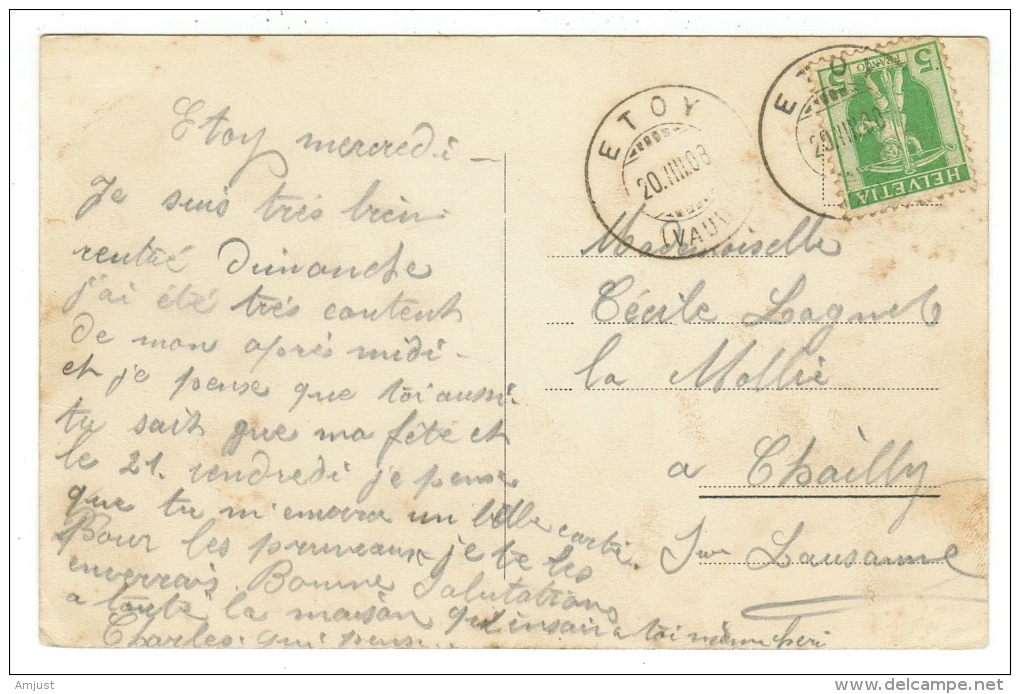 Etoy mercredi –
Je suis très bien
rentré dimanche
j'ai été très content
de mon après midi –
et je pense que toi aussi.
tu sait que ma fété et
le 21. vendredi je pense
que tu m'enverra un belle carte.
Pour les pruneaux je te les
enverrais. Bonne Salutation
a toute la maison
Charles. qui pense a toi
ETOY
20.VIII.08
(VAUD)
ETO
20.VIII.08
FRANCO
5 5
HELVETIA
Mademoiselle
Cécile Lagnel
la Mollie
a Chailly
Sur Lausanne
Amjust
delcampe.net